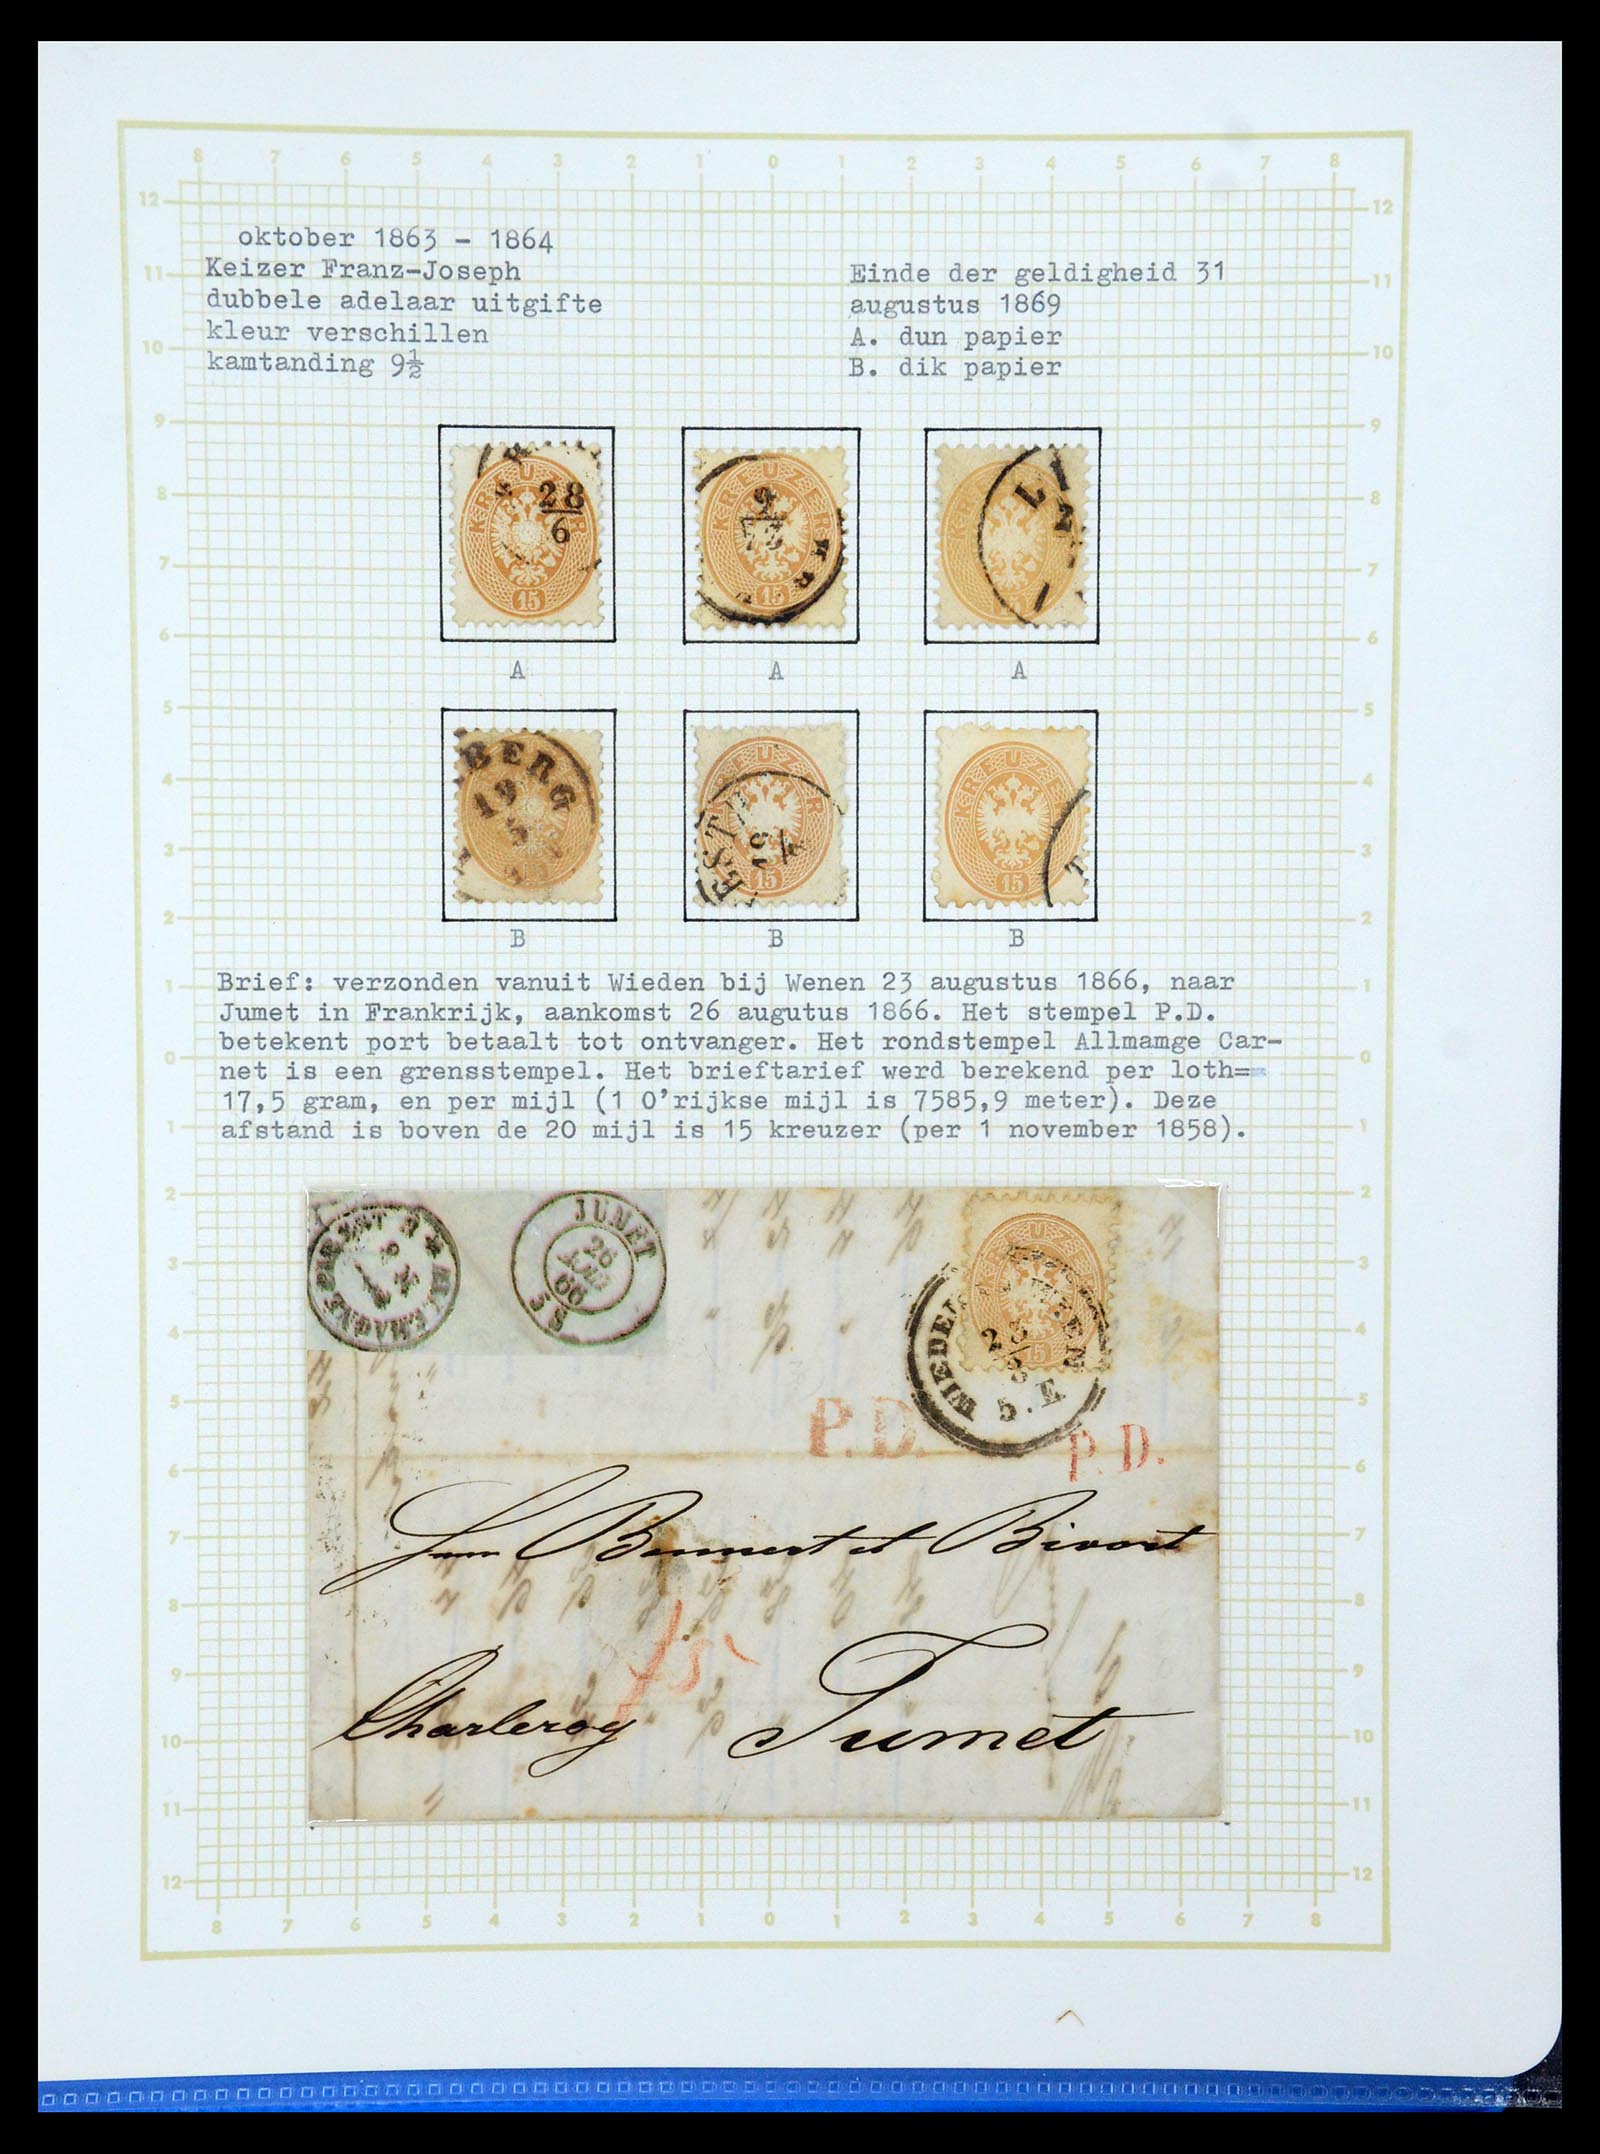 oktober 1863 - 1864
Keizer Franz-Joseph
dubbele adelaar uitgifte
kleur verschillen
kamtanding 9½
Einde der geldigheid 31
augustus 1869
A. dun papier
B. dik papier
KREUZER
28
6
15
KREUZER
9
15
L
15
A
A
A
BERG
19
KREUZER
ESTH
15
KREUZER
15
T
B
B
B
Brief: verzonden vanuit Wieden bij Wenen 23 augustus 1866, naar
Jumet in Frankrijk, aankomst 26 augutus 1866. Het stempel P.D.
betekent port betaalt tot ontvanger. Het rondstempel Allmamge Car-
net is een grensstempel. Het brieftarief werd berekend per loth=
17,5 gram, en per mijl (1 O'rijkse mijl is 7585,9 meter). Deze
afstand is boven de 20 mijl is 15 kreuzer (per 1 november 1858).
JUMET
26
66
5 S
WIEDEN WIEN
23
8
5.E.
15
P.D.
P.D.
Bennert et Bivort
15
Charleroy Jumet